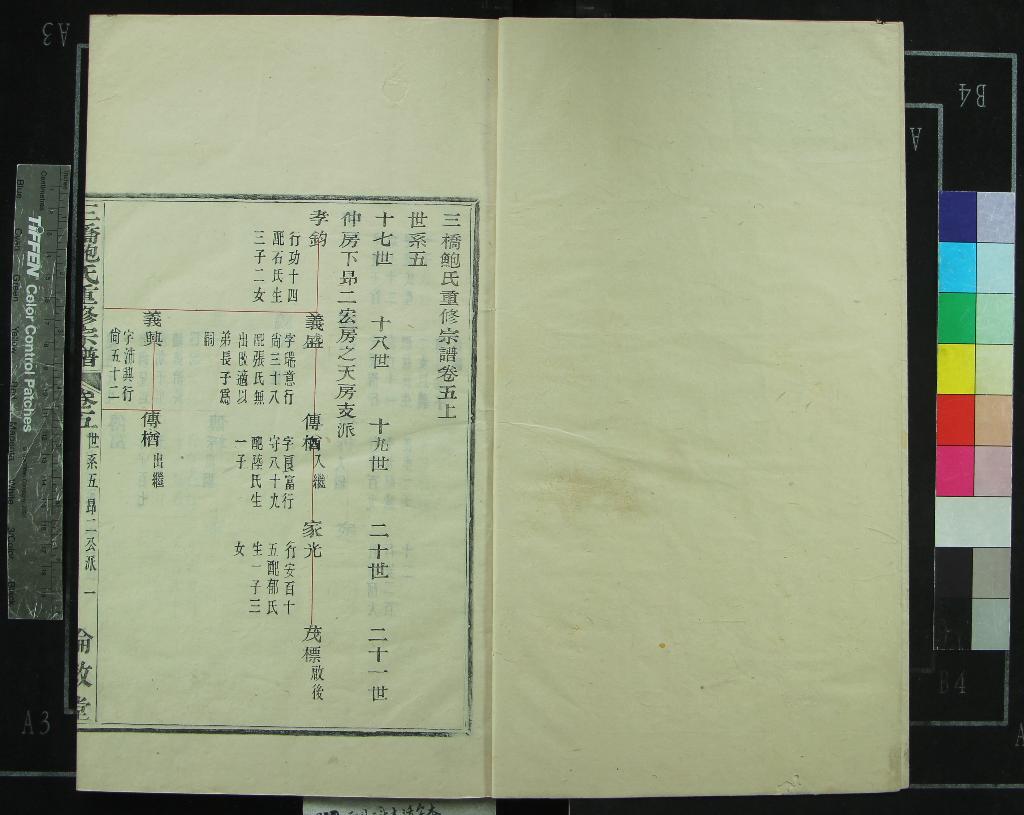 三橋鮑氏重修宗譜卷五上
世系五
十七世 十八世 十九世 二十世 二十一世
仲房下昴二宏房之天房支派
孝鈞
行功十四
配石氏生
三子二女
義盛
字瑞意行
尙三十八
配張氏無
出以適以
弟長子爲
嗣
傳楢入繼
字良富行
守八十九
配陸氏生
一子
家光
行安百十
五配郁氏
生一子三
女
茂標啟後
義興
字沛興行
尙五十二
傳楢出繼
三橋鮑氏重修宗譜 卷五 世系五 昴二公派 一 倫敘堂
TIFFEN Color Control Patches
Centimetres
Inches
Blue
A3
B4
A
A3
B4